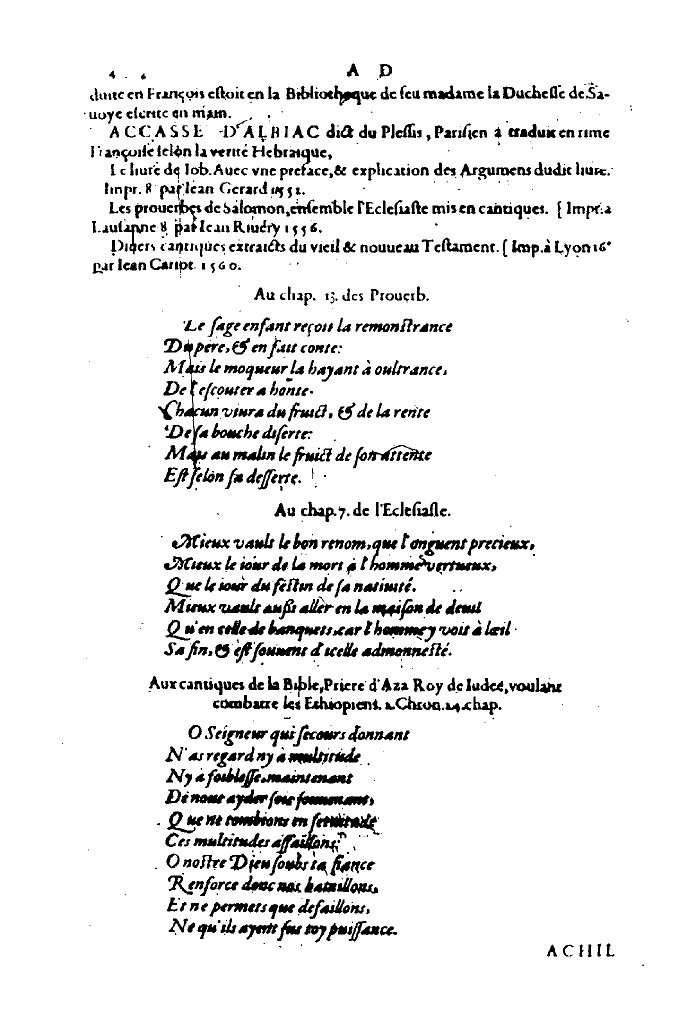 4 A D
duite en François estoit en la Bibliotheque de feu madame la Duchesse de Sa-
uoye escrite en main.
ACCASSE D'ALBIAC dict du Plessis, Parisien a traduit en rime
Françoise selon la verité Hebraique,
Le liure de Iob. Auec vne preface, & explication des Argumens dudit liure.
Impr. 8 par Iean Gerard 1552.
Les prouerbes de Salomon, ensemble l'Eclesiaste mis en cantiques. [ Impr. a
Lausanne 8 par Iean Riuery 1556.
Diuers cantiques extraicts du vieil & nouueau Testament. [ Imp. à Lyon 16°
par Iean 1560.
Au chap. 13. des Prouerb.
Le sage enfant reçoit la remonstrance
Du pere, & en fait conte:
Mais le moqueur la hayant à oultrance,
De l'escouter a honte.
Chacun viura du fruict, & de la rente
De sa bouche diserte:
Mais au malin le fruict de son attente
Est selon sa desserte.
Au chap. 7. de l'Eclesiaste.
Mieux vault le bon renom, que l'onguent precieux,
Mieux le iour de la mort à l'homme vertueux,
Que le iour du festin de sa natiuité.
Mieux vault aussi aller en la maison de deuil
Qu'en celle de banquets, car l'homme y voit à l'œil
Sa fin, & est souuent d'icelle admonnesté.
Aux cantiques de la Bible, Priere d'Aza Roy de Iudee, voulant
combatre les Ethiopiens. 2. Chron. 14. chap.
O Seigneur qui secours donnant
N'as regard ny à multitude
Ny à foiblesse, maintenant
De nous ayder sois souuenant,
Que ne tombions en seruitude
Ces multitudes assaillons,
O nostre Dieu soubs ta fiance
Renforce donc nos bataillons,
Et ne permets que defaillons,
Ne qu'ils ayent sus toy puissance.
ACHIL